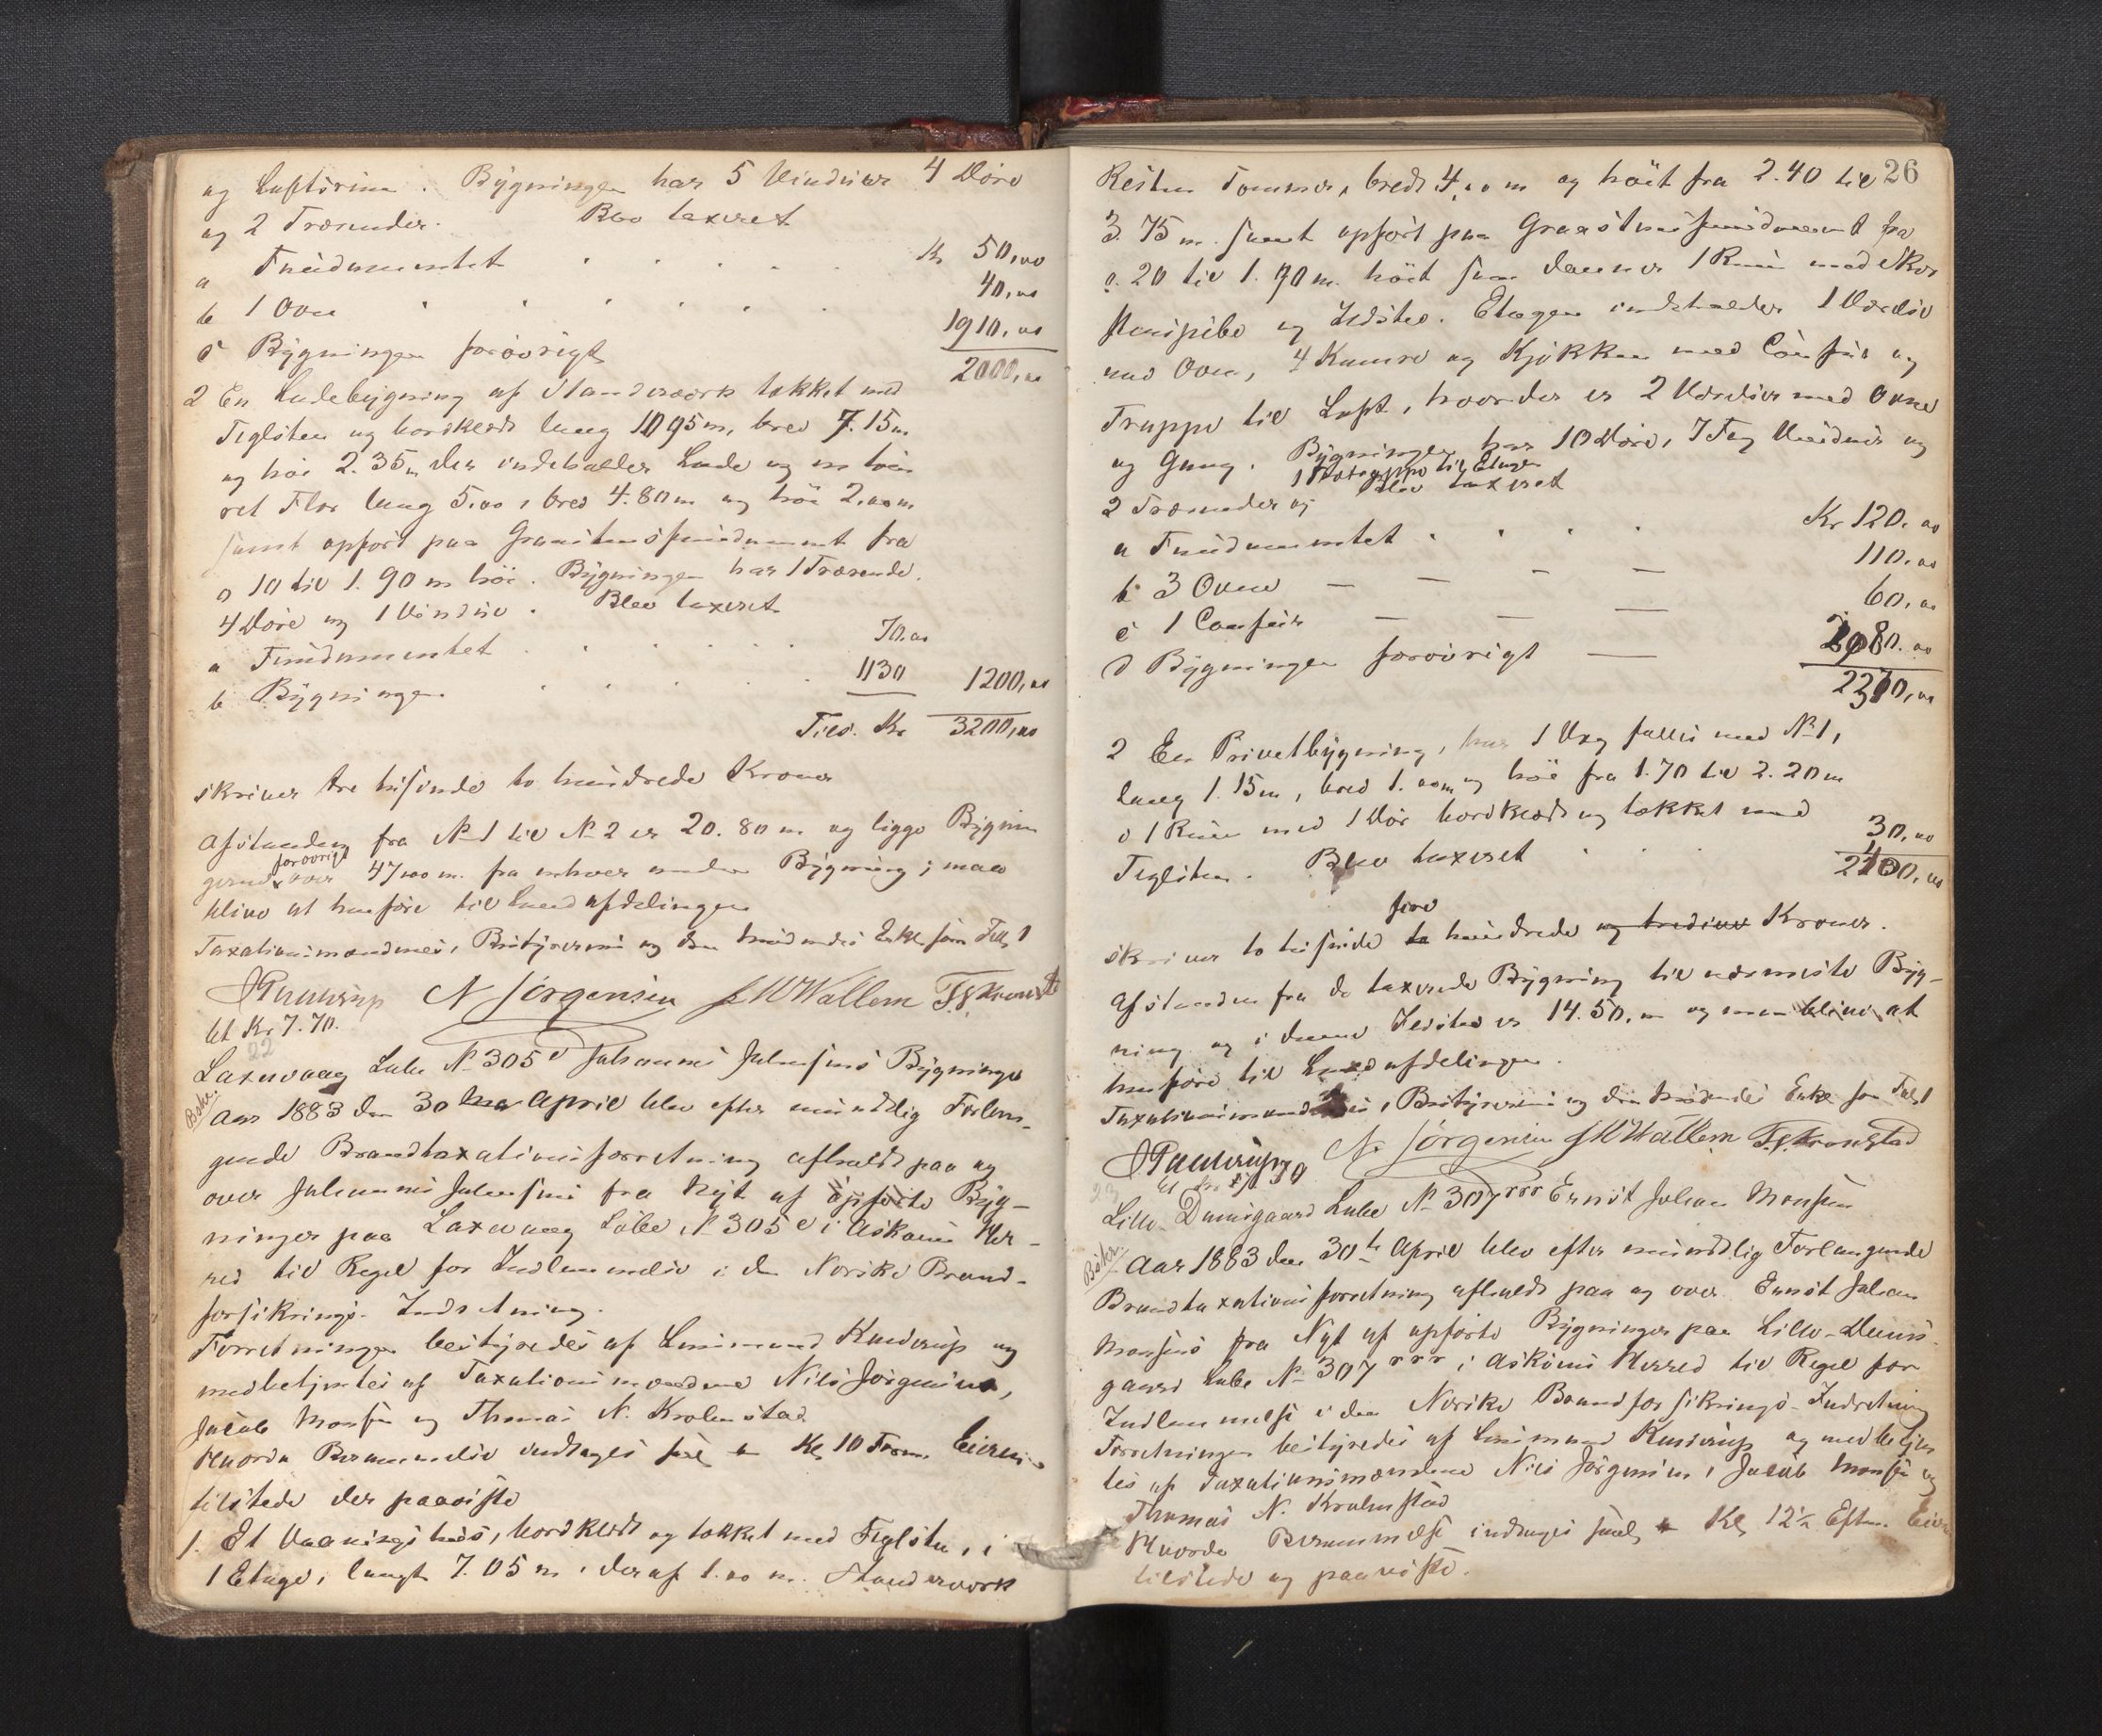 og Loftsrum. Bygningen har 5 Vinduer 4 Døre
og 2 Trærender. Blev taxeret
a Fundamentet . . . . Kr 50,00
b 1 Ovn . . . . . . 40,00
c Bygningen forøvrigt 1910,00
2000,00
2 En Ladebygning af Standerværk tækket med
Teglsten og bordklædt lang 10 95 m, bred 7.15 m
og høi 2.35 m der indeholder Lade og en
ret Flor lang 5.00, bred 4.80 m og høi 2.00 m
samt opført paa Graastensfundament fra
0 10 til 1.90 m høi. Bygningen har 1 Trærende.
4 Døre og 1 Vindue. Blev taxeret
a Fundamentet . . . . . 70.00
b Bygningen . . . . . 1130 1200,00
Tils. Kr 3200,00
skriver tre tusinde to hundrede Kroner
Afstanden fra No 1 til No 2 er 20.80 m og ligge Bygnin
forøvrigt
gerne over 47,00 m. fra enhver anden Bygning; maa
blive at henføre til Landafdelingen
Taxationsmændenes, Bestyrerens og den
HKuderup N Jörgensen J M Wallem T.N. Kronstad
bt Kr 7.70.
22
Laxevaag Løbe No 305 e Johannes Johnsens Bygninger
Bskr.
Aar 1883 den 30 April blev efter mundtlig Forlan-
gende Brandtaxationsforretning afholdt paa og
over Johannes Johnsens fra Nyt af opførte Byg-
ninger paa Laxevaag Løbe No 305 e i Askøens Her-
red til Regel for Indlemmelse i den Norske Brand-
forsikrings-Indretning.
Forretningen bestyredes af Lensmand Kuderup og
medbetjentes af Taxationsmændene Nils Jörgensen,
Jacob Monsen og Thomas N. Kronstad
Hvorda Berammelse indtages saal. Kl 10 Form. Eieren
tilstede der paaviste
1. Et Vaaningshus, bordklædt og tækket med Teglsten, i
1 Etage, langt 7.05 m, deraf 1.00 m. Standerværk
26
Resten Tømmer, bredt 4,00 m og høit fra 2.40 til
3.75 m. samt opført paa Graastensfundament fra
0.20 til 1.70 m. høit som danner 1 Rum med Skor
stenspibe og Ildsted. Etagen indeholder 1 Værelse
med Ovn, 4 Kamre og Kjøkken med Comfur og
Trappe til Loft, hvor der er 2 Værelser med Ovne
og Gang. Bygningen har 10 Døre, 7 Fag Vinduer og
1 Trætrappe til Etagen
2 Trærender og Blev taxeret
a Fundamentet . . . . Kr 120.00
b 3 Ovne — — — — 110.00
c 1 Comfur — — — 60,00
d Bygningen forøvrigt — 2080.00
2370,00
2 En Privetbygning, har 1 Væg fælles med No 1,
lang 1.15 m, bred 1.00 m og høi fra 1.70 til 2.20 m
o 1 Rum med 1 Dør bordklædt og tækket med
Teglsten. Blev taxeret . . . 30,00
2400,00
fire
skriver to tusinde to hundrede og tredive Kroner.
Afstanden fra de taxerede Bygning til nærmeste Byg-
ning og i denne Ildsted er 14.50, m og maa blive at
henføre til Landafdelingen.
Taxationsmændenes, Bestyrerens og den
HKuderup N. Jörgensen J M Wallem T.N. Kronstad
23
Lille-Damsgaard Løbe No 307 rrr Ernst Johan Monsen
Bskr.
Aar 1883 den 30te April blev efter mundtlig Forlangende
Brandtaxationsforretning afholdt paa og over Ernst Johan
Monsens fra Nyt af opførte Bygninger paa Lille-Dams-
gaard Løbe No 307 rrr i Askøens Herred til Regel for
Indlemmelse i den Norske Brandforsikrings-Indretning
Forretningen bestyredes af Lensmand Kuderup og medbetjen
tes af Taxationsmændene Nils Jörgensen, Jacob Monsen og
Thomas N. Kronstad
Hvorda Berammelse indtages saal. Kl 12½ Efterm. Eieren
tilstede og paaviste.